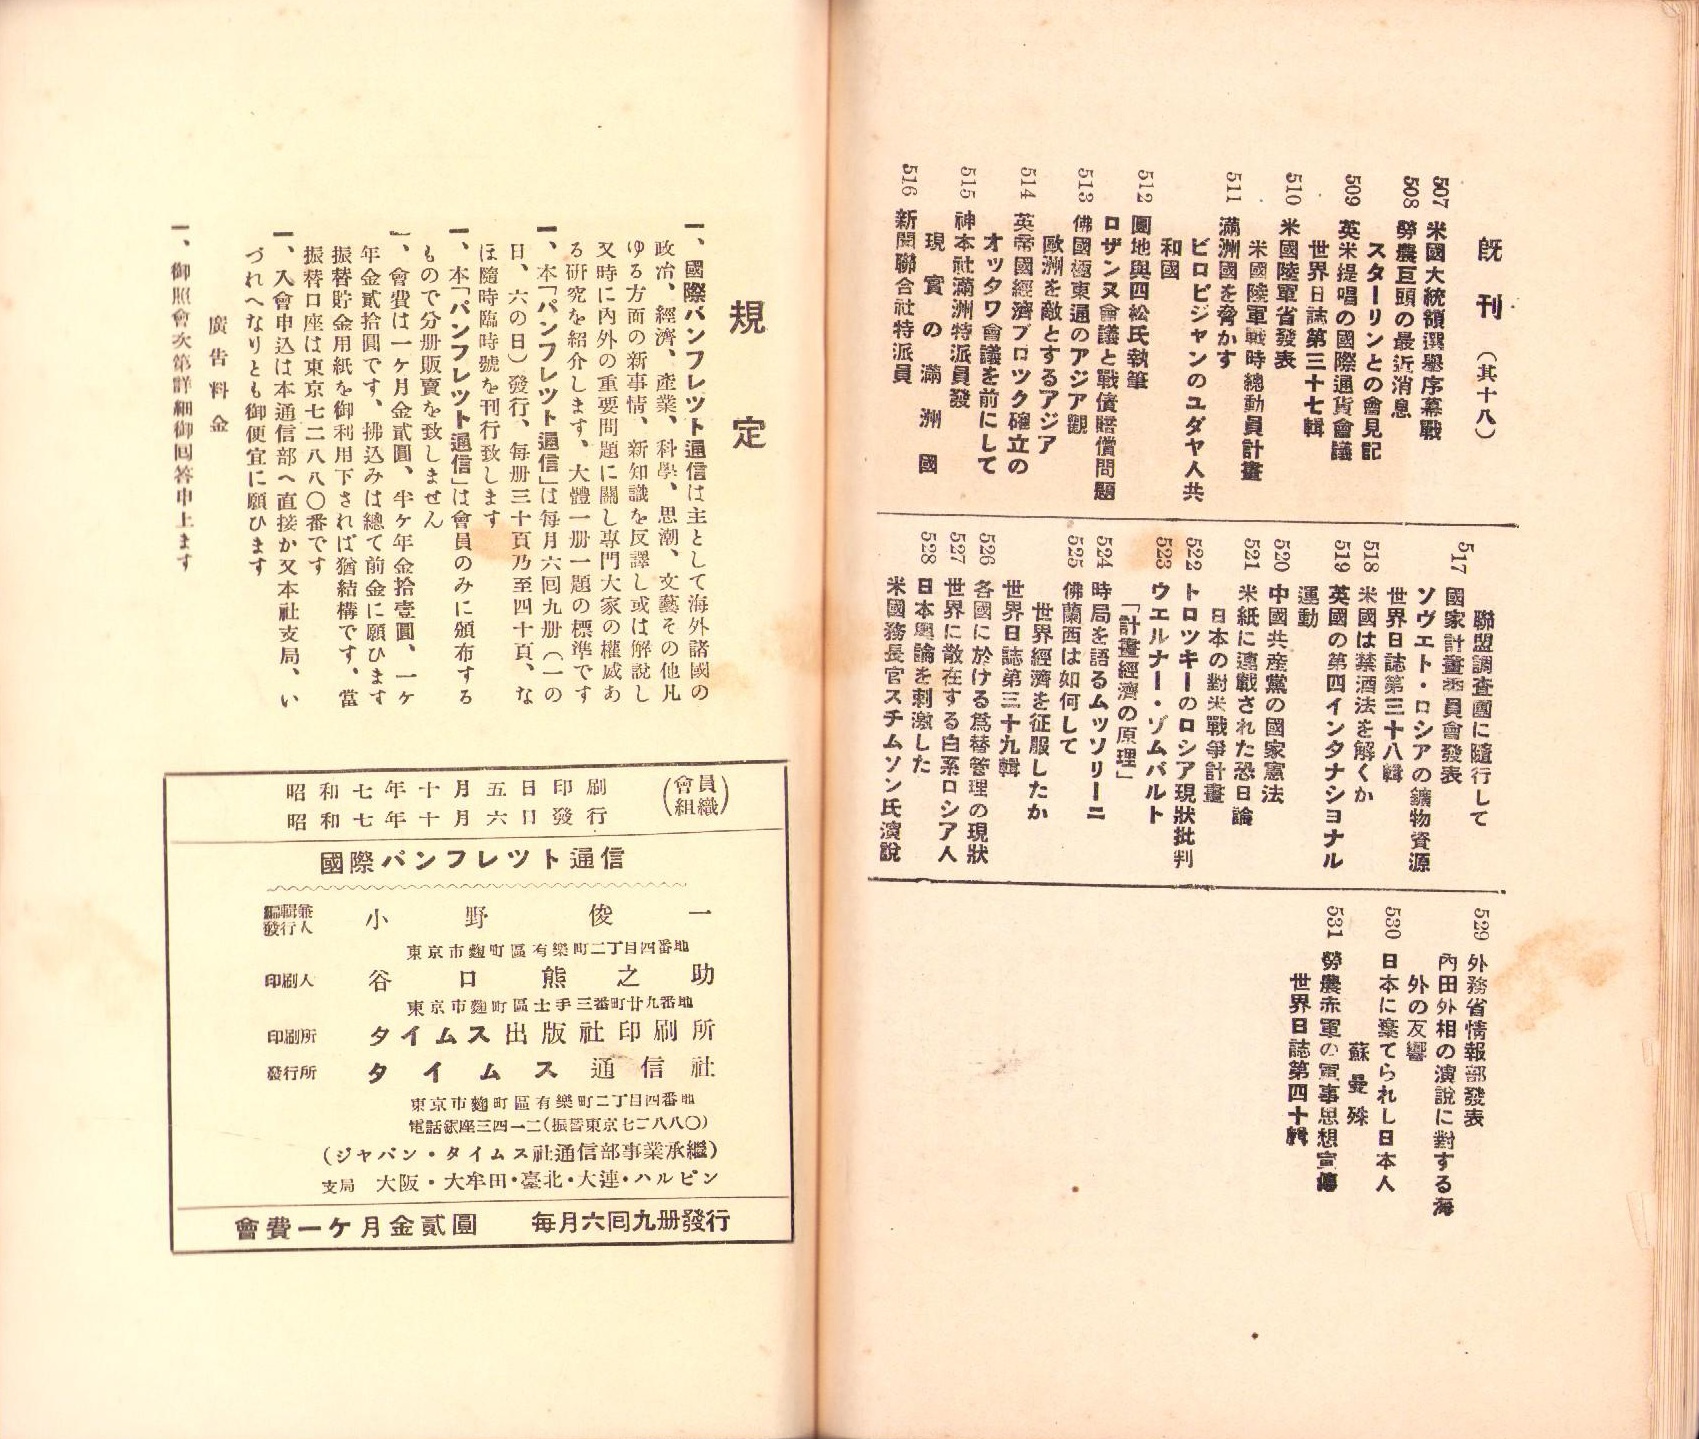 既刊（其十八）
507 米國大統領選擧序幕戰
508 勞農巨頭の最近消息
スターリンとの會見記
509 英米提唱の國際通貨會議
世界日誌第三十七輯
510 米國陸軍省發表
米國陸軍戰時總動員計畫
511 滿洲國を脅かす
ビロビジャンのユダヤ人共
和國
512 團地與四松氏執筆
ロザンヌ會議と戰債賠償問題
513 佛國極東通のアジア觀
歐洲を敵とするアジア
514 英帝國經濟ブロック確立の
オッタワ會議を前にして
515 神本社滿洲特派員發
現實の滿洲國
516 新聞聯合社特派員
聯盟調査團に隨行して
517 國家計畫委員會發表
ソヴエト・ロシアの鑛物資源
世界日誌第三十八輯
518 米國は禁酒法を解くか
519 英國の第四インタナショナル
運動
520 中國共産黨の國家憲法
521 米紙に連載された恐日論
日本の對米戰爭計畫
522 トロツキーのロシア現狀批判
523 ウエルナー・ゾムバルト
「計畫經濟の原理」
524 時局を語るムッソリーニ
525 佛蘭西は如何して
世界經濟を征服したか
世界日誌第三十九輯
526 各國に於ける爲替管理の現狀
527 世界に散在する白系ロシア人
528 日本輿論を刺激した
米國務長官スチムソン氏演說
529 外務省情報部發表
內田外相の演說に對する海
外の反響
530 日本に棄てられし日本人
蘇曼殊
531 勞農赤軍の軍事思想宣傳
世界日誌第四十輯
規定
一、國際パンフレツト通信は主として海外諸國の
政治、經濟、產業、科學、思潮、文藝その他凡
ゆる方面の新事情、新知識を反譯し或は解說し
又時に內外の重要問題に關し專門大家の權威あ
る研究を紹介します、大體一册一題の標準です
一、本「パンフレツト通信」は每月六回九册（一の
日、六の日）發行、每册三十頁乃至四十頁、な
ほ隨時臨時號を刊行致します
一、本「パンフレツト通信」は會員のみに頒布する
もので分册販賣を致しません
一、會費は一ケ月金貳圓、半ケ年金拾壹圓、一ケ
年金貳拾圓です、拂込みは總て前金に願ひます
振替貯金用紙を御利用下されば猶結構です、當
振替口座は東京七二八八〇番です
一、入會申込は本通信部へ直接か又本社支局、い
づれへなりとも御便宜に願ひます
廣告料金
一、御照會次第詳細御回答申上ます
昭和七年十月五日印刷
昭和七年十月六日發行
（會員組織）
國際パンフレツト通信
編輯兼發行人 小野俊一
東京市麴町區有樂町二丁目四番地
印刷人 谷口熊之助
東京市麴町區土手三番町廿九番地
印刷所 タイムス出版社印刷所
發行所 タイムス通信社
東京市麴町區有樂町二丁目四番地
電話銀座三四一二（振替東京七二八八〇）
（ジャパン・タイムス社通信部事業承繼）
支局 大阪・大牟田・臺北・大連・ハルピン
會費一ケ月金貳圓 每月六回九册發行